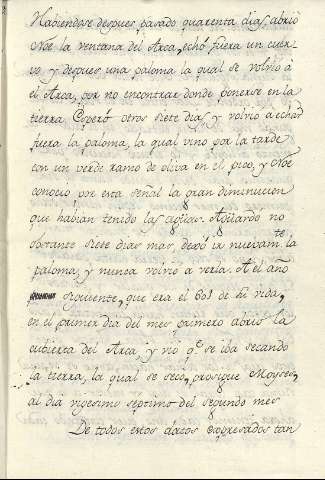 Habiendose despues pasado quarenta dias abrió
Noe la ventana del Arca, echó fuera un cuer-
vo, y despues una paloma la qual se volvió á
el Arca, por no encontrar donde ponerse en la
tierra. Esperó otros siete dias, y volvió a echar
fuera la paloma, la qual vino por la tarde
con un verde ramo de oliva en el pico, y Noe
conocio por esta señal la gran diminucion
que habian tenido las aguas. Aguardó no
obstante siete dias mas, dexó ir nuevam.te la
paloma, y nunca volvio a verla. A el año
siguiente, que era el 601 de su vida,
en el primer dia del mes primero abrió la
cubierta del Arca, y vio q.e se iba secando
la tierra, la qual se secó, prosigue Moyses,
al dia vigesimo septimo del segundo mes
De todos estos datos expresados tan